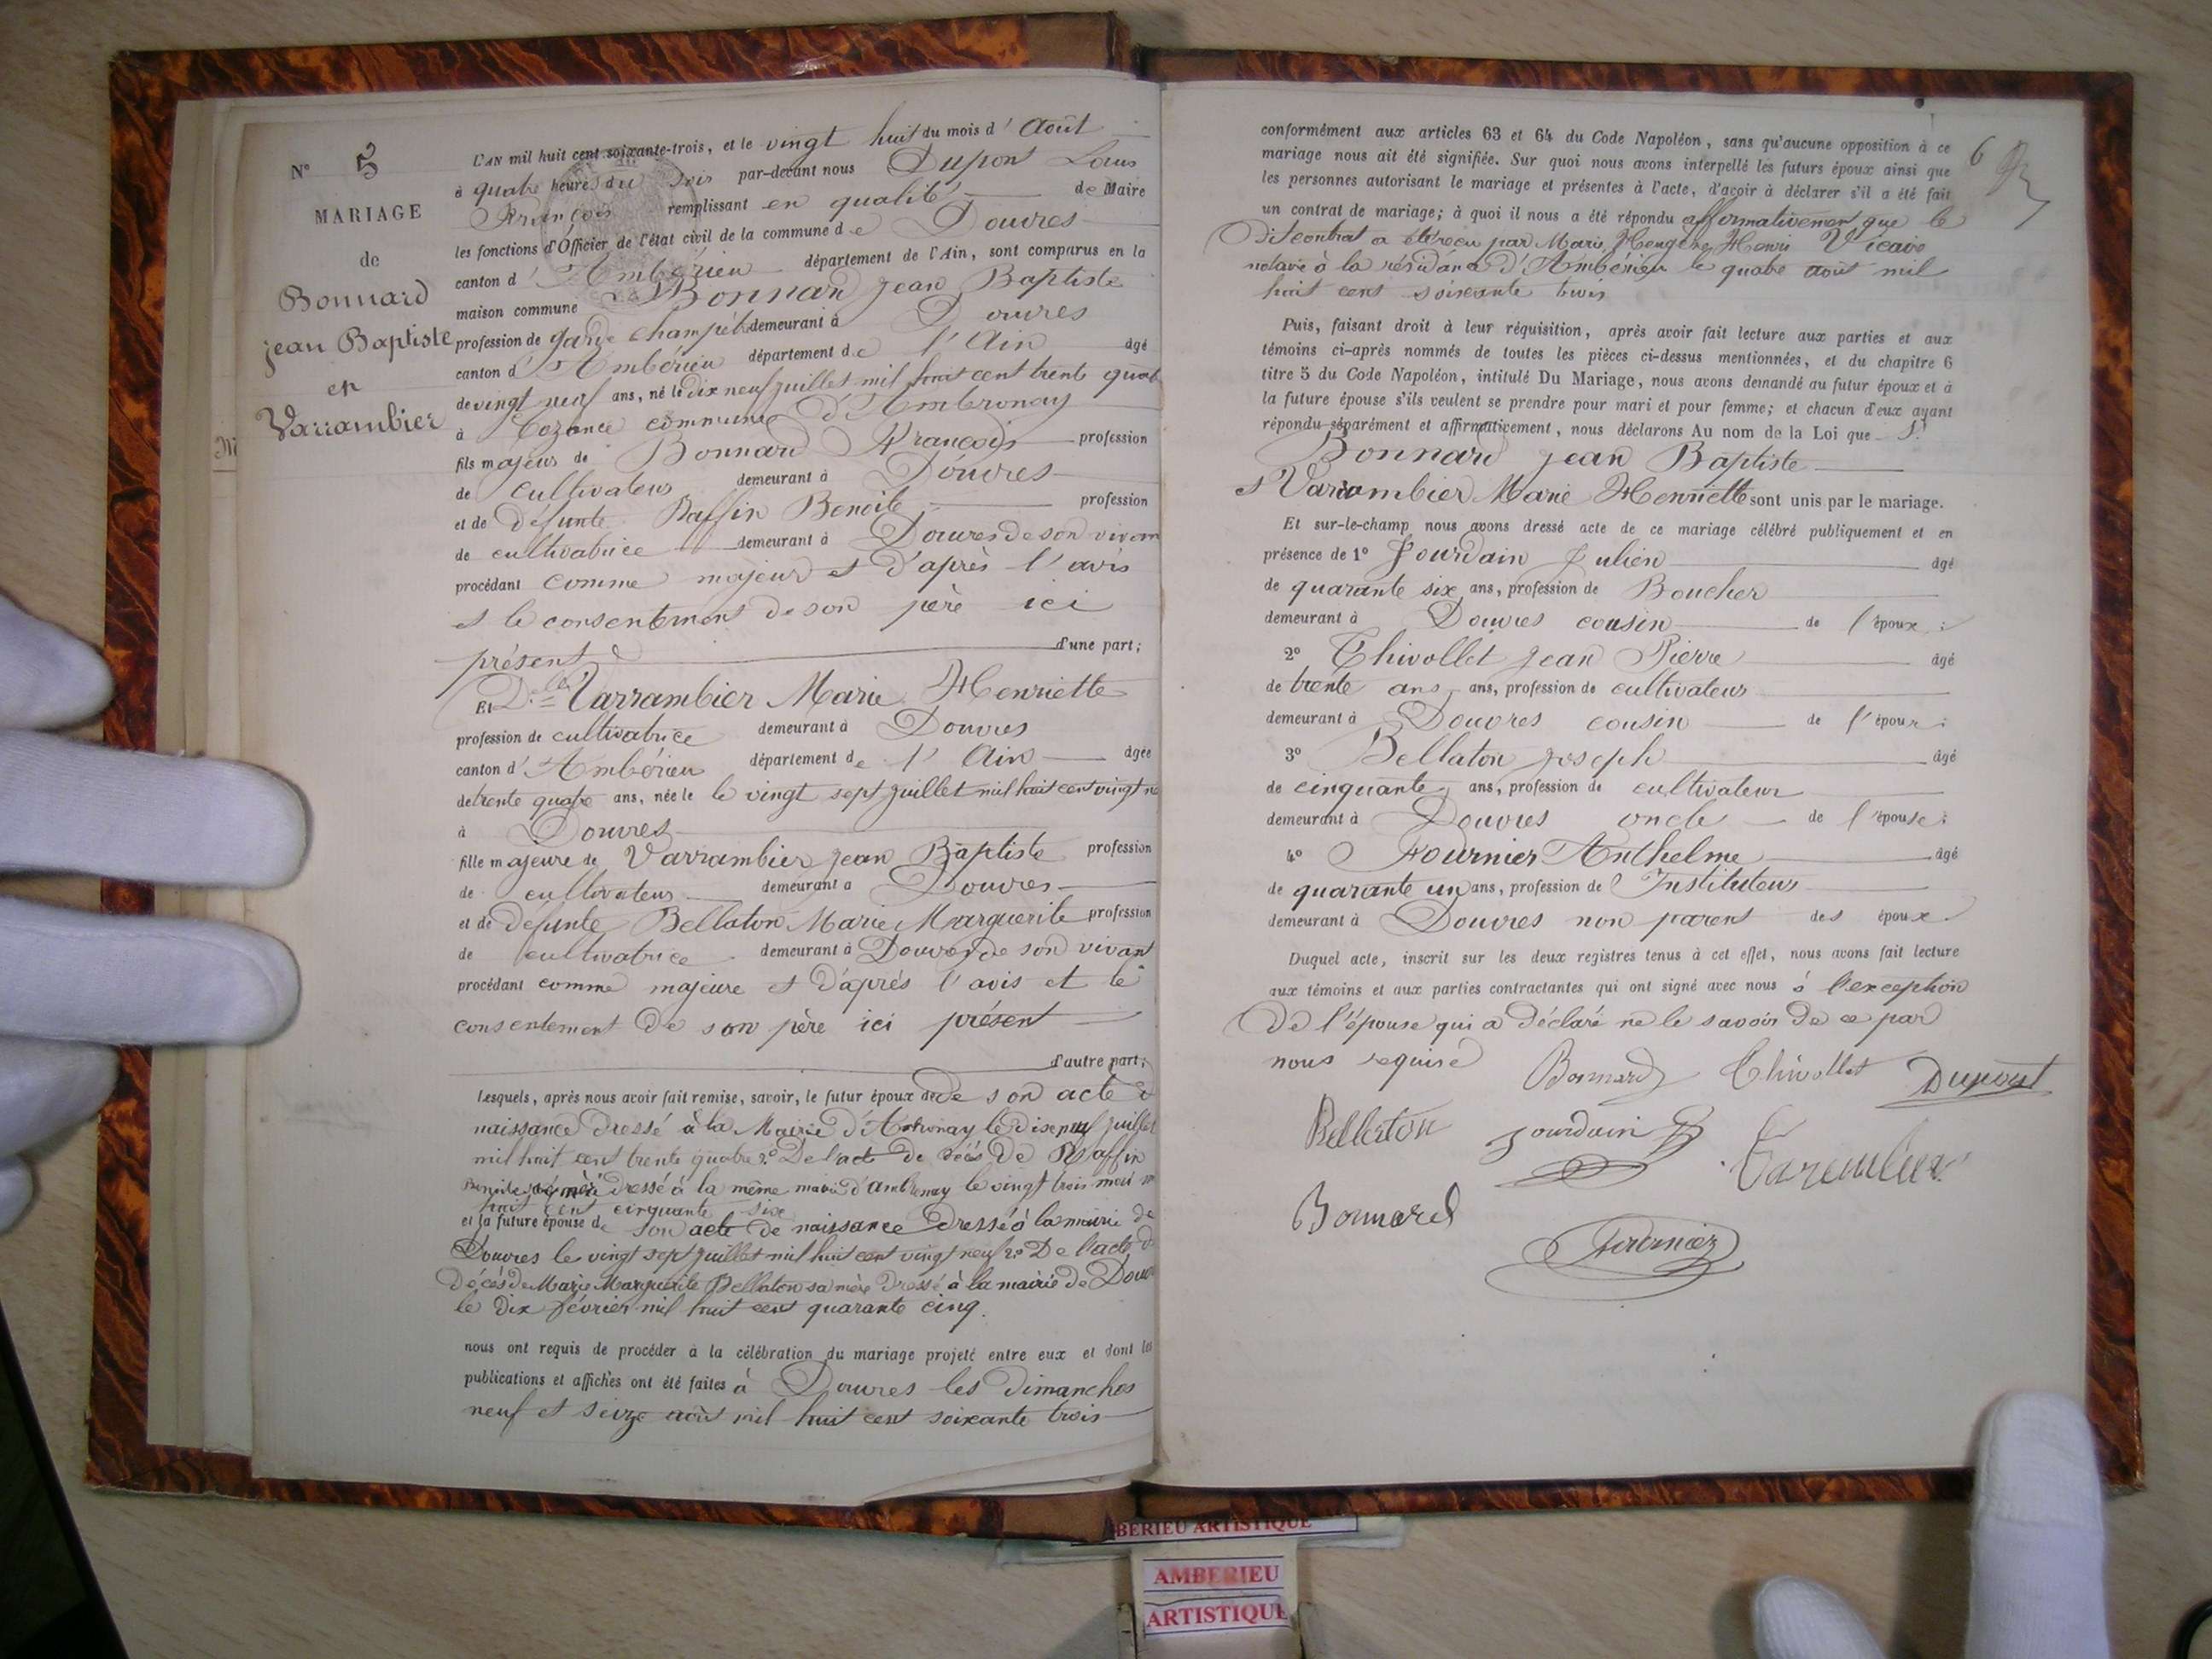 N° 5
MARIAGE
de
Bonnard
jean Baptiste
et
Varrambier
L'AN mil huit cent soixante-trois, et le vingt huit du mois d'Août
à quatre heures du soir par-devant nous Dupont Louis
François remplissant en qualité de Maire
les fonctions d'Officier de l'état civil de la commune de Douvres
canton d'Ambérieu département de l'Ain, sont comparus en la
maison commune Bonnard jean Baptiste
profession de garde champêtre demeurant à Douvres
canton d'Ambérieu département de l'Ain âgé
de vingt neuf ans, né le dix neuf juillet mil huit cent trente quatre
à Cozance commune d'Ambronay
fils majeur de Bonnard François profession
de cultivateur demeurant à Douvres
et de défunte Raffin Benoite profession
de cultivatrice demeurant à Douvres de son vivant
procédant comme majeur et d'après l'avis
et le consentement de son père ici
présent d'une part;
Et Dlle Varrambier Marie Henriette
profession de cultivatrice demeurant à Douvres
canton d'Ambérieu département de l'Ain âgée
de trente quatre ans, née le le vingt sept juillet mil huit cent vingt ne
à Douvres
fille majeure de Varrambier jean Baptiste profession
de cultivateur demeurant à Douvres
et de défunte Bellaton Marie Marguerite profession
de cultivatrice demeurant à Douvres de son vivant
procédant comme majeure et d'après l'avis et le
consentement de son père ici présent
d'autre part;
Lesquels, après nous avoir fait remise, savoir, le futur époux de de son acte de
naissance dressé à la Mairie d'Ambronay le dix neuf juillet
mil huit cent trente quatre 2° De l'acte de décès de Raffin
Benoite sa mère dressé à la même mairie d'ambronay le vingt trois mai m
huit cent cinquante six
et la future épouse de son acte de naissance dressé à la mairie de
Douvres le vingt sept juillet mil huit cent vingt neuf 2° De l'acte de
décès de Marie Marguerite Bellaton sa mère dressé à la mairie de Douv
le dix février mil huit cent quarante cinq.
nous ont requis de procéder à la célébration du mariage projeté entre eux et dont les
publications et affiches ont été faites à Douvres les dimanches
neuf et seize août mil huit cent soixante trois
6
conformément aux articles 63 et 64 du Code Napoléon, sans qu'aucune opposition à ce
mariage nous ait été signifiée. Sur quoi nous avons interpellé les futurs époux ainsi que
les personnes autorisant le mariage et présentes à l'acte, d'avoir à déclarer s'il a été fait
un contrat de mariage; à quoi il nous a été répondu affirmativement que le
Dit contrat a été reçu par Marie Heugène Henri Vicaire
notaire à la résidance d'Ambérieu le quatre août mil
huit cent soixante trois
Puis, faisant droit à leur réquisition, après avoir fait lecture aux parties et aux
témoins ci-après nommés de toutes les pièces ci-dessus mentionnées, et du chapitre 6
titre 5 du Code Napoléon, intitulé Du Mariage, nous avons demandé au futur époux et à
la future épouse s'ils veulent se prendre pour mari et pour femme; et chacun d'eux ayant
répondu séparément et affirmativement, nous déclarons Au nom de la Loi que Sr
Bonnard jean Baptiste
et Varrambier Marie Henriette sont unis par le mariage.
Et sur-le-champ nous avons dressé acte de ce mariage célébré publiquement et en
présence de 1° Jourdain Julien âgé
de quarante six ans, profession de Boucher
demeurant à Douvres cousin de l'époux;
2° Thivollet jean Pierre âgé
de trente ans ans, profession de cultivateur
demeurant à Douvres cousin de l'époux;
3° Bellaton joseph âgé
de cinquante ans, profession de cultivateur
demeurant à Douvres oncle de l'épouse;
4° Fournier Anthelme âgé
de quarante un ans, profession de Instituteur
demeurant à Douvres non parent des époux.
Duquel acte, inscrit sur les deux registres tenus à cet effet, nous avons fait lecture
aux témoins et aux parties contractantes qui ont signé avec nous à l'exception
De l'épouse qui a déclaré ne le savoir de ce par
nous requise
Bonnard Thivollet Dupont
Bellaton Jourdain Varembier
Bonnard
Fournier
BERIEU ARTISTIQUE
AMBERIEU
ARTISTIQUE